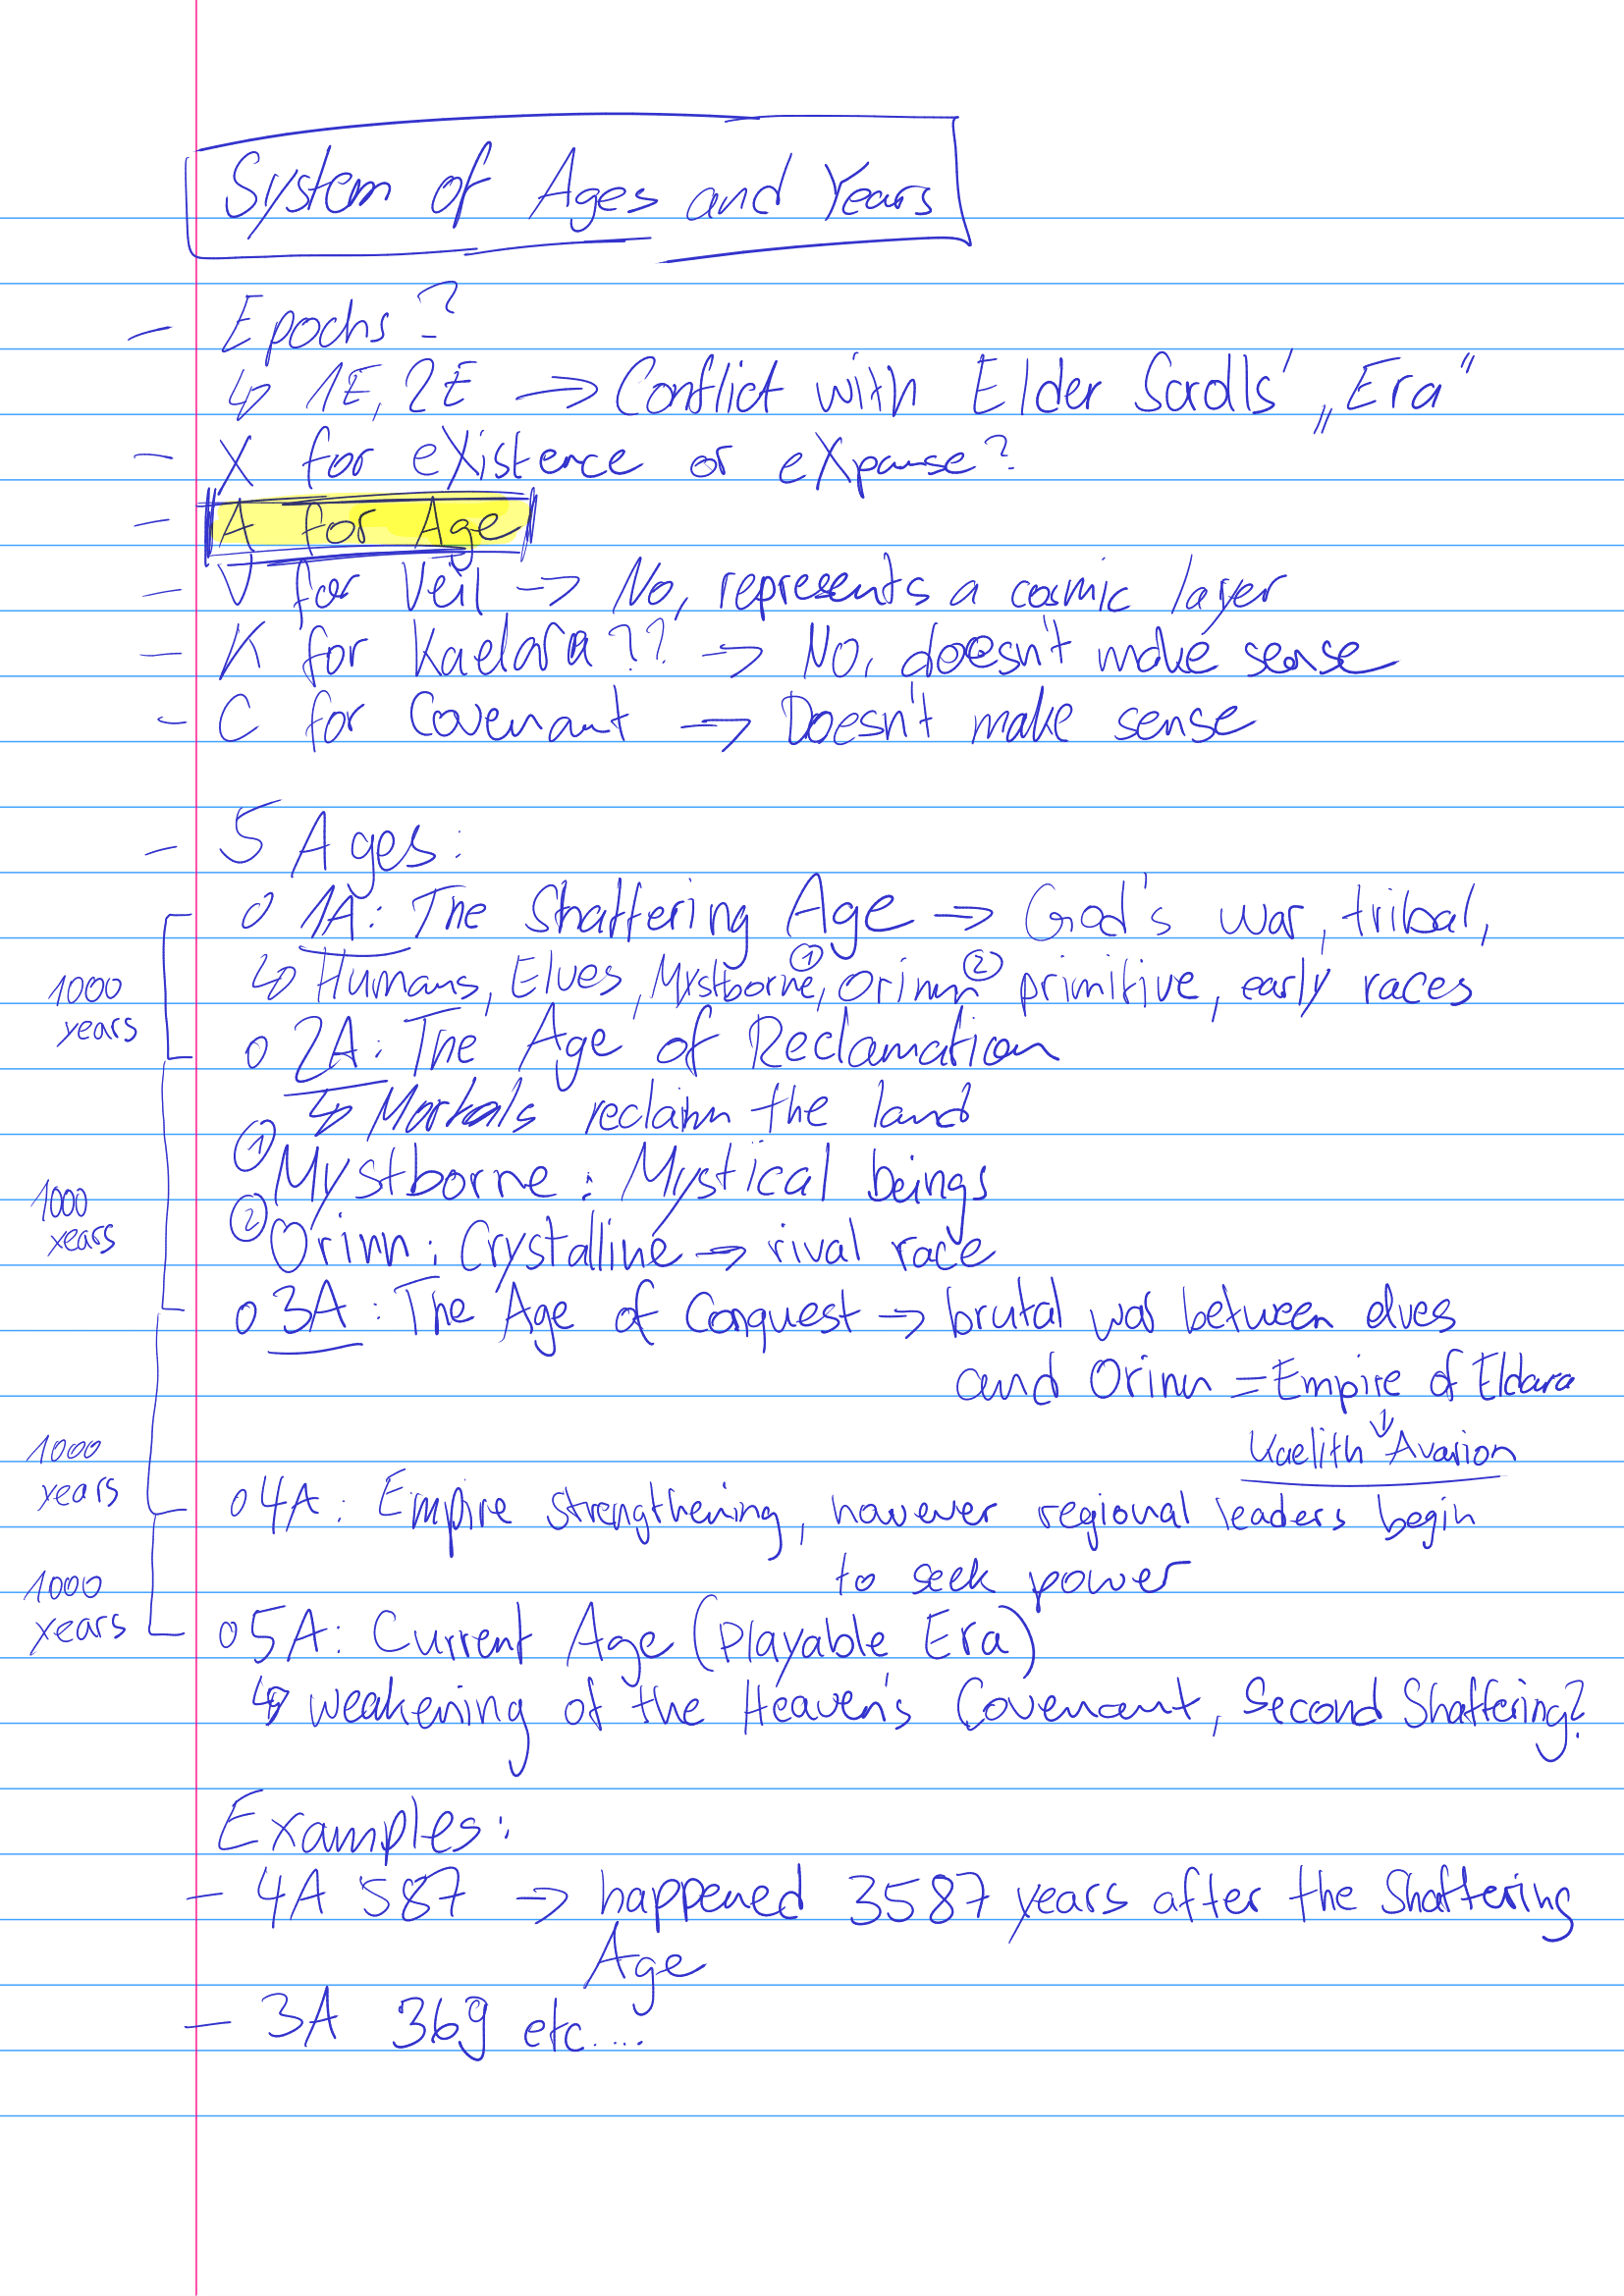 System of Ages and Years
- Epochs?
↳ 1E, 2E → Conflict with Elder Scrolls' „Era"
- X for eXistence or eXpanse?
- A for Age
- V for Veil → No, represents a cosmic layer
- K for Kaelara?? → No, doesn't make sense
- C for Covenant → Doesn't make sense
- 5 Ages:
o 1A: The Shattering Age → God's war, tribal,
↳ Humans, Elves, Mystborne①, Orinn② primitive, early races
1000
years
o 2A: The Age of Reclamation
↳ Mortals reclaim the land
① Mystborne: Mystical beings
② Orinn: Crystalline → rival race
1000
years
o 3A: The Age of Conquest → brutal war between elves
and Orinn = Empire of Eldara
↓
Kaelith Avarion
1000
years
o 4A: Empire strengthening, however regional leaders begin
to seek power
1000
years
o 5A: Current Age (Playable Era)
↳ weakening of the Heaven's Covenant, Second Shattering?
Examples:
- 4A 587 → happened 3587 years after the Shattering
Age
- 3A 369 etc....